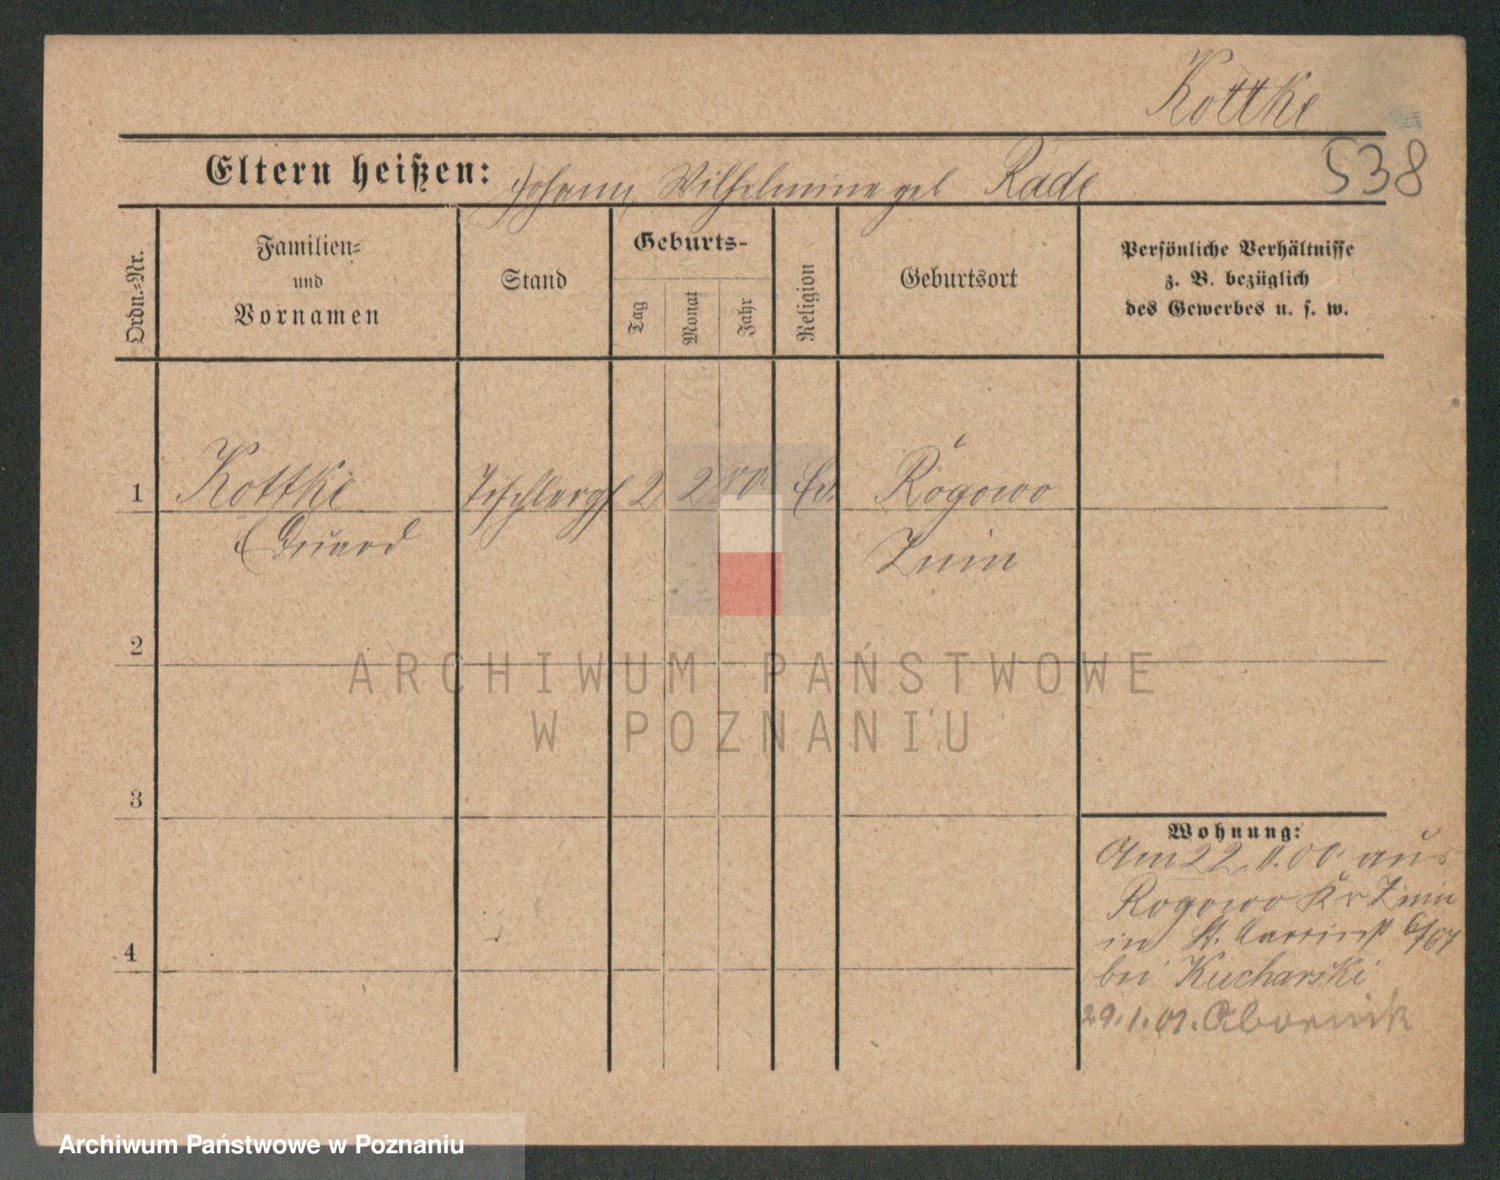 Kottke
538
Eltern heißen: Johann, Wilhelmine geb Rade
Ordn.-Nr.
Familien-
und
Vornamen
Stand
Geburts-
Tag
Monat
Jahr
Religion
Geburtsort
Persönliche Verhältnisse
z. B. bezüglich
des Gewerbes u. s. w.
1 Kottke Tischlergs 2 2 80 Ev. Rogowo
Eduard Znin
2
ARCHIWUM PAŃSTWOWE
W POZNANIU
3
Wohnung:
Am 22. 11. 00. aus
Rogowo Kr Znin
in St. Martinst 67
bei Kucharski
4
29.1.01. Obornik
Archiwum Państwowe w Poznaniu